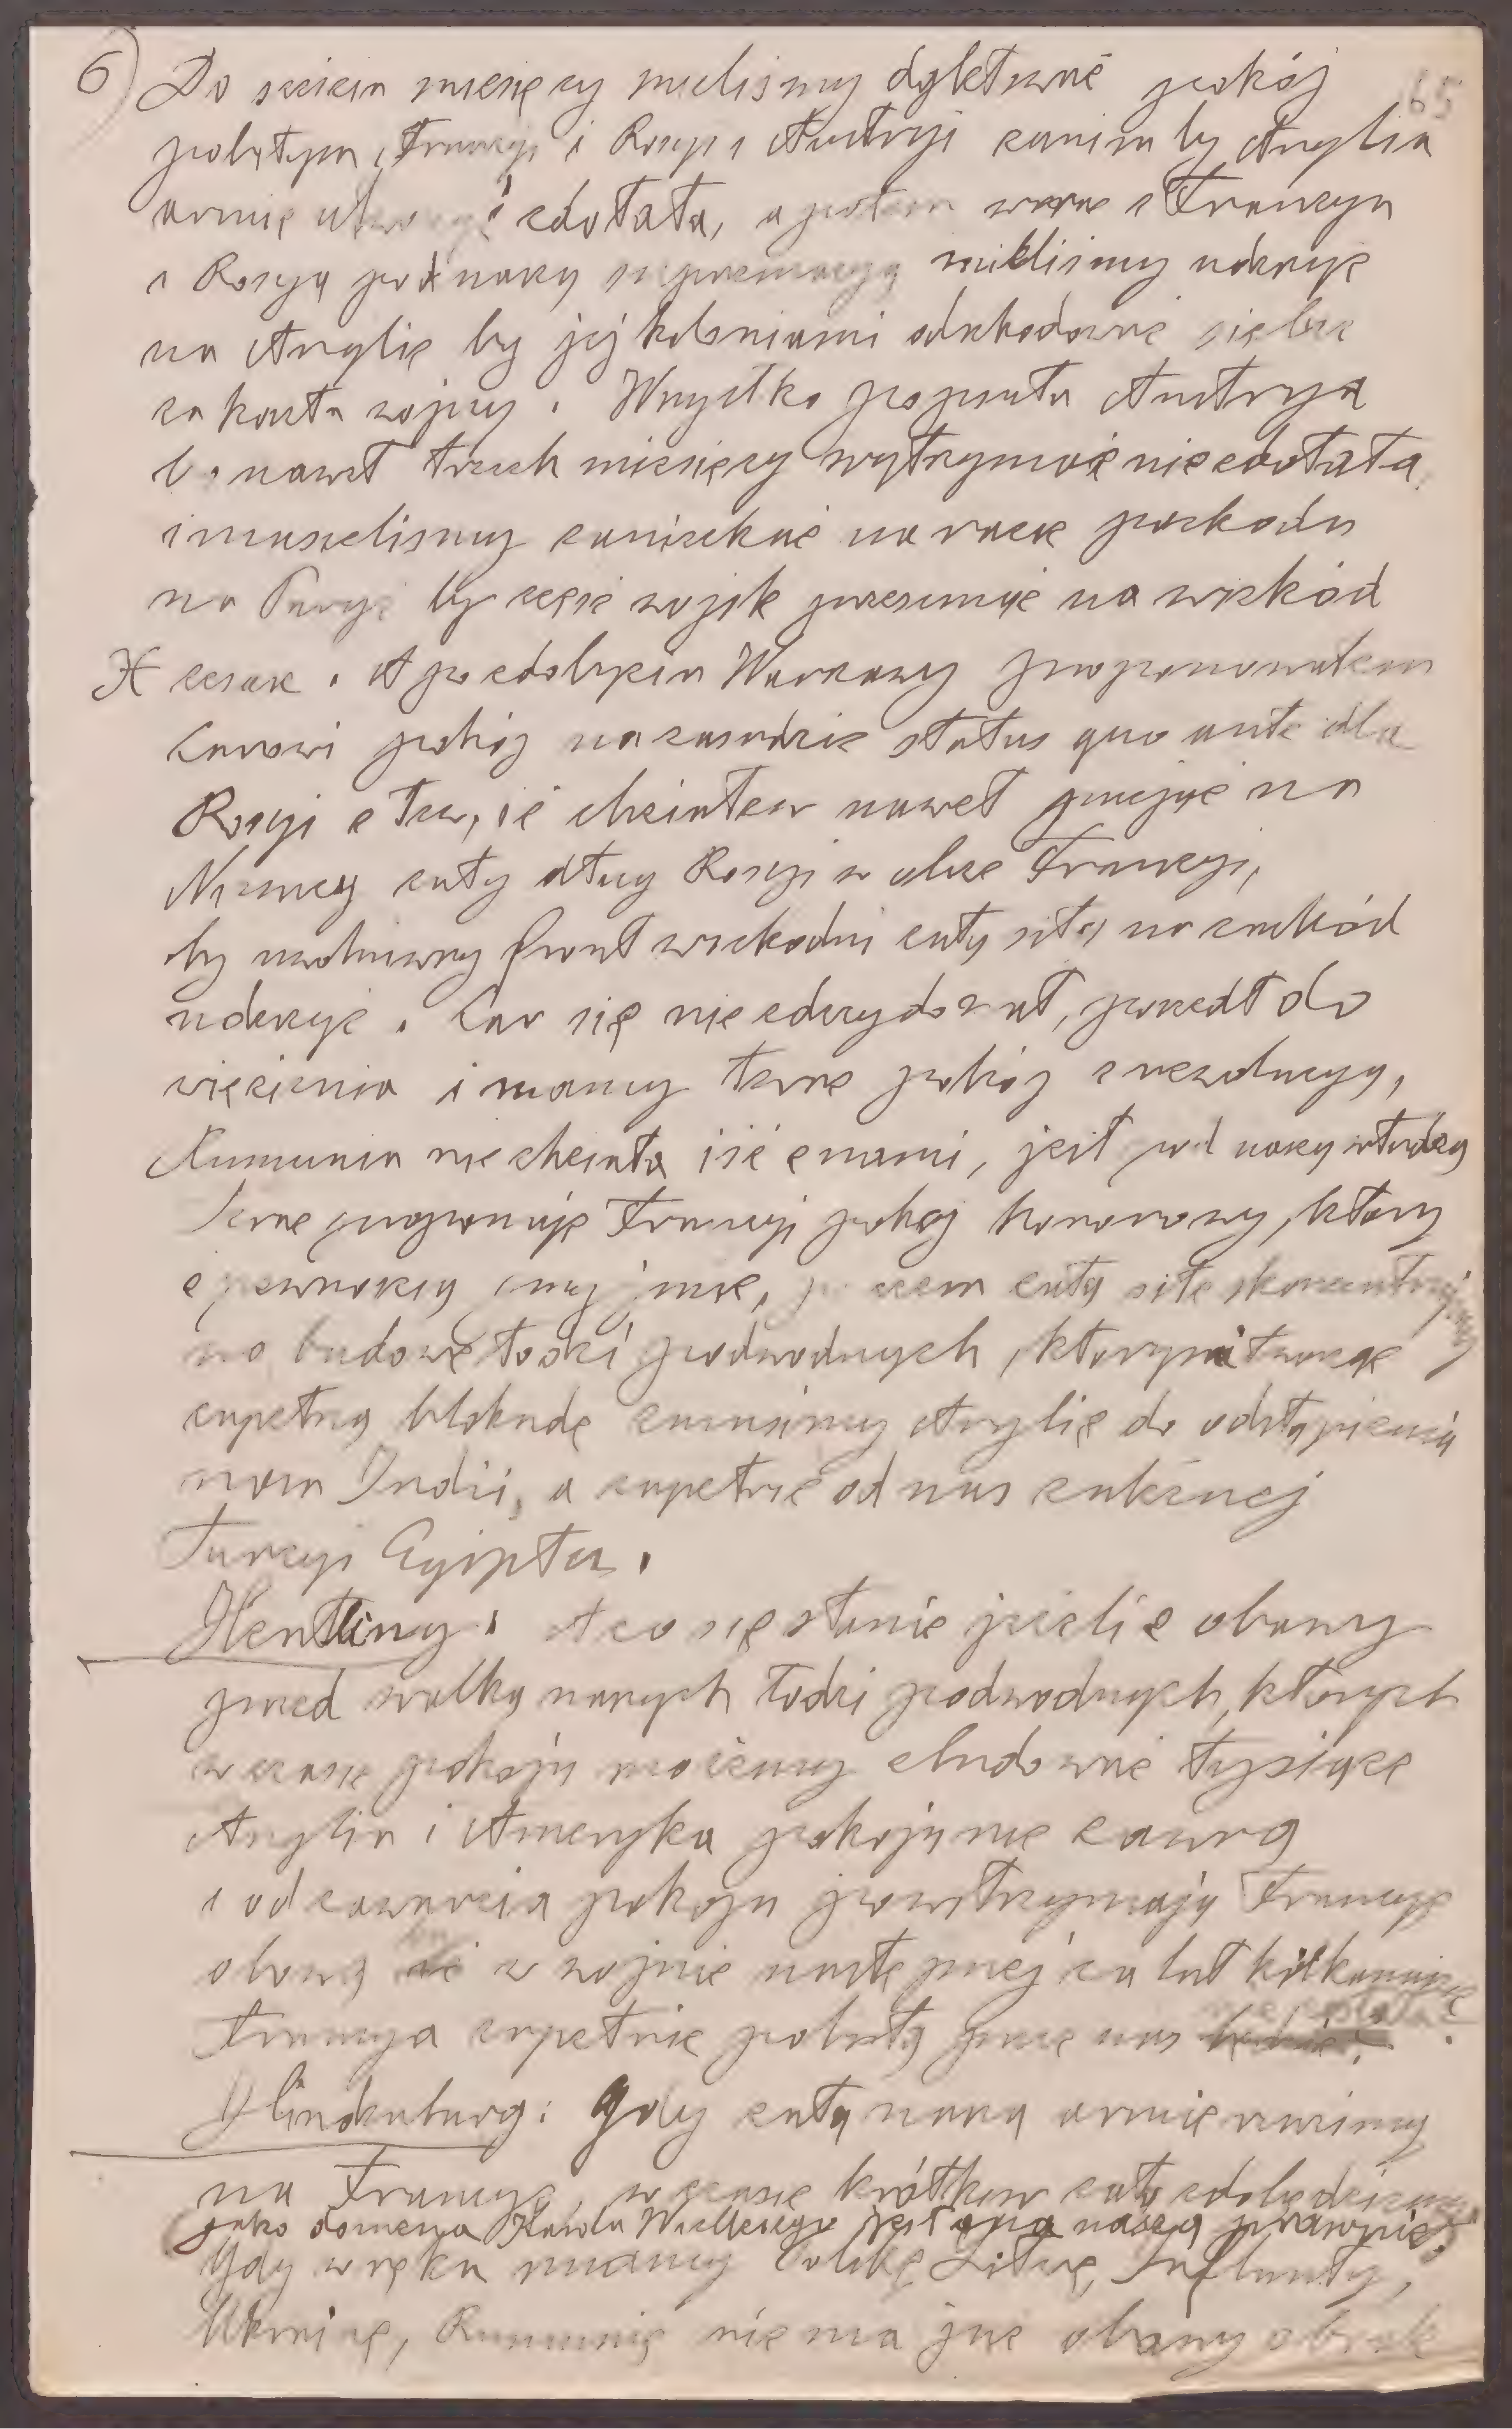 6) Do sześciu miesięcy mieliśmy dyktować pokój 65
pobitym, Francyi i Rosyi i Austryi zanim by Anglia
armię utworzyć zdołała, a potem wraz z Francyą
i Rosyą pod naszą supremacyą mieliśmy uderzyć
na Anglię by jej koloniami odszkodować siebie
za koszta wojny. Wszystko popsuła Austrya
bo nawet trzech miesięcy wytrzymać nie zdołała,
i musieliśmy zaniechać na razie pochodu
na Paryż by część wojsk przesunąć na wschód
H cesarz. A po zdobyciu Warszawy proponowałem
Carowi pokój na zasadzie status quo ante dla
Rosyi z tem, iż chciałem nawet przyjąć na
Niemcy cały dług Rosyi w obec Francyi,
by uwolniwszy front wschodni całą siłą na zachód
uderzyć. Car się nie zdecydował, poszedł do
więzienia i mamy teraz pokój z rewolucyą,
Rumunia nie chciała iść z nami, jest pod naszą władzą
Teraz proponuję Francyi pokój honorowy, który
z pewnością przyjmie, po czem całą siłę skoncentrujemy
na budowę łodzi podwodnych, którymi tworząc
zupełną blokadę zmusimy Anglię do odstąpienia
nam Indii, a zupełnie od nas zależnej
Turcyi Egiptu.
Hertling: A co się stanie jeżeli z obawy
przed walką naszych łodzi podwodnych, których
w czasie pokoju możemy zbudować tysiące
Anglia i Ameryka pokoju nie zawrą
i od zawarcia pokoju powstrzymają Francyę
obawą by w wojnie następnej za lat kilkanaście
Francya zupełnie pobitą przez nas nie została.
Hindenburg: Gdy całą naszą armię rzucimy
na Francyę, w czasie krótkim całą zdobędziemy
jako domena Karola Wielkiego jest ona naszą prawnie.
Gdy w ręku mamy Polskę, Litwę, Inflanty,
Ukrainę, Rumunię nie ma już obawy